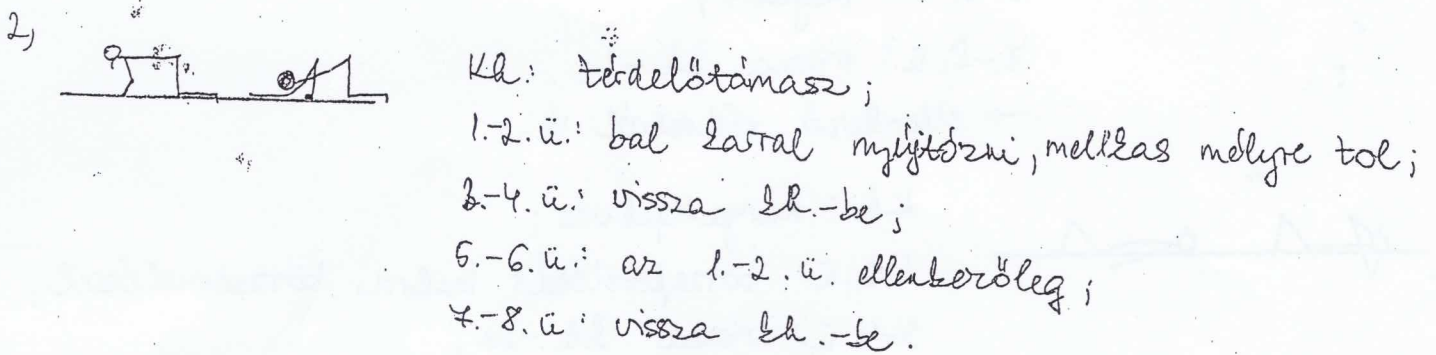 2,
Kh.: térdelőtámasz;
1.-2. ü.: bal karral nyújtózni, mellkas mélyre tol;
3.-4. ü.: vissza kh.-be;
5.-6. ü.: az 1.-2. ü ellenkezőleg;
7.-8. ü.: vissza kh.-be.